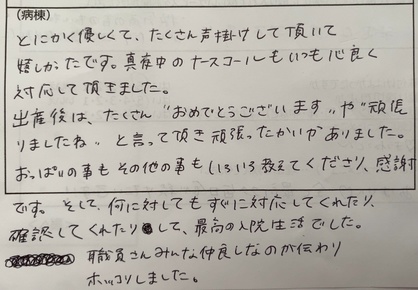 (病棟)
とにかく優しくて、たくさん声掛けして頂いて
嬉しかったです。真夜中のナースコールもいつも心良く
対応して頂きました。
出産後は、たくさん"おめでとうございます"や"頑張
りましたね"と言って頂き頑張ったかいがありました。
おっぱいの事もその他の事もいろいろ教えてくださり、感謝
です。そして、何に対してもすぐに対応してくれたり、
確認してくれたりして、最高の入院生活でした。
職員さんみんな仲良しなのが伝わり
ホッコリしました。